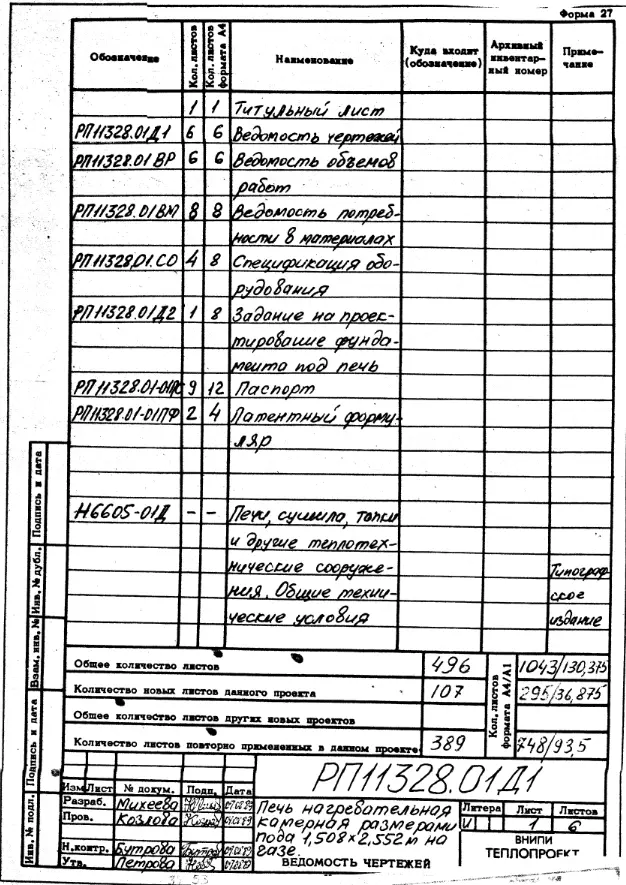 Форма 27
Обозначение Кол. листов Кол. листов формата А4 Наименование Куда входит (обозначение) Архивный инвентар-ный номер Приме-чание
1 1 Титульный лист
РП11328.01Д1 6 6 Ведомость чертежей
РП11328.01ВР 6 6 Ведомость объемов
работ
РП11328.01ВМ 8 8 Ведомость потреб-
ности в материалах
РП11328.01.СО 4 8 Спецификация обо-
рудования
РП11328.01Д2 1 8 Задание на проек-
тирование фунда-
мента под печь
РП11328.01-01ПС 9 12 Паспорт
РП11328.01-01ПФ 2 4 Патентный форму-
ляр
Н6605-01Д - - Печи, сушила, топки
и другие теплотех-
нические сооруже- Типограф-
ния. Общие техни- ское
ческие условия издание
Общее количество листов 496 Кол. листов формата А4/А1 1043/130,375
Количество новых листов данного проекта 107 295/36,875
Общее количество листов других новых проектов
Количество листов повторно примененных в данном проекте 389 748/93,5
Подпись и дата
Инв. № дубл.
Взам. инв. №
Подпись и дата
Инв. № подл.
РП11328.01Д1
Изм Лист № докум. Подп. Дата
Разраб. Михеева
Пров. Козлова
Н.контр. Бутрова
Утв. Петрова
Печь нагревательная
камерная размерами
пода 1,508×2,552м на
газе.
ВЕДОМОСТЬ ЧЕРТЕЖЕЙ
Литера Лист Листов
И 1 6
ВНИПИ
ТЕПЛОПРОЕКТ